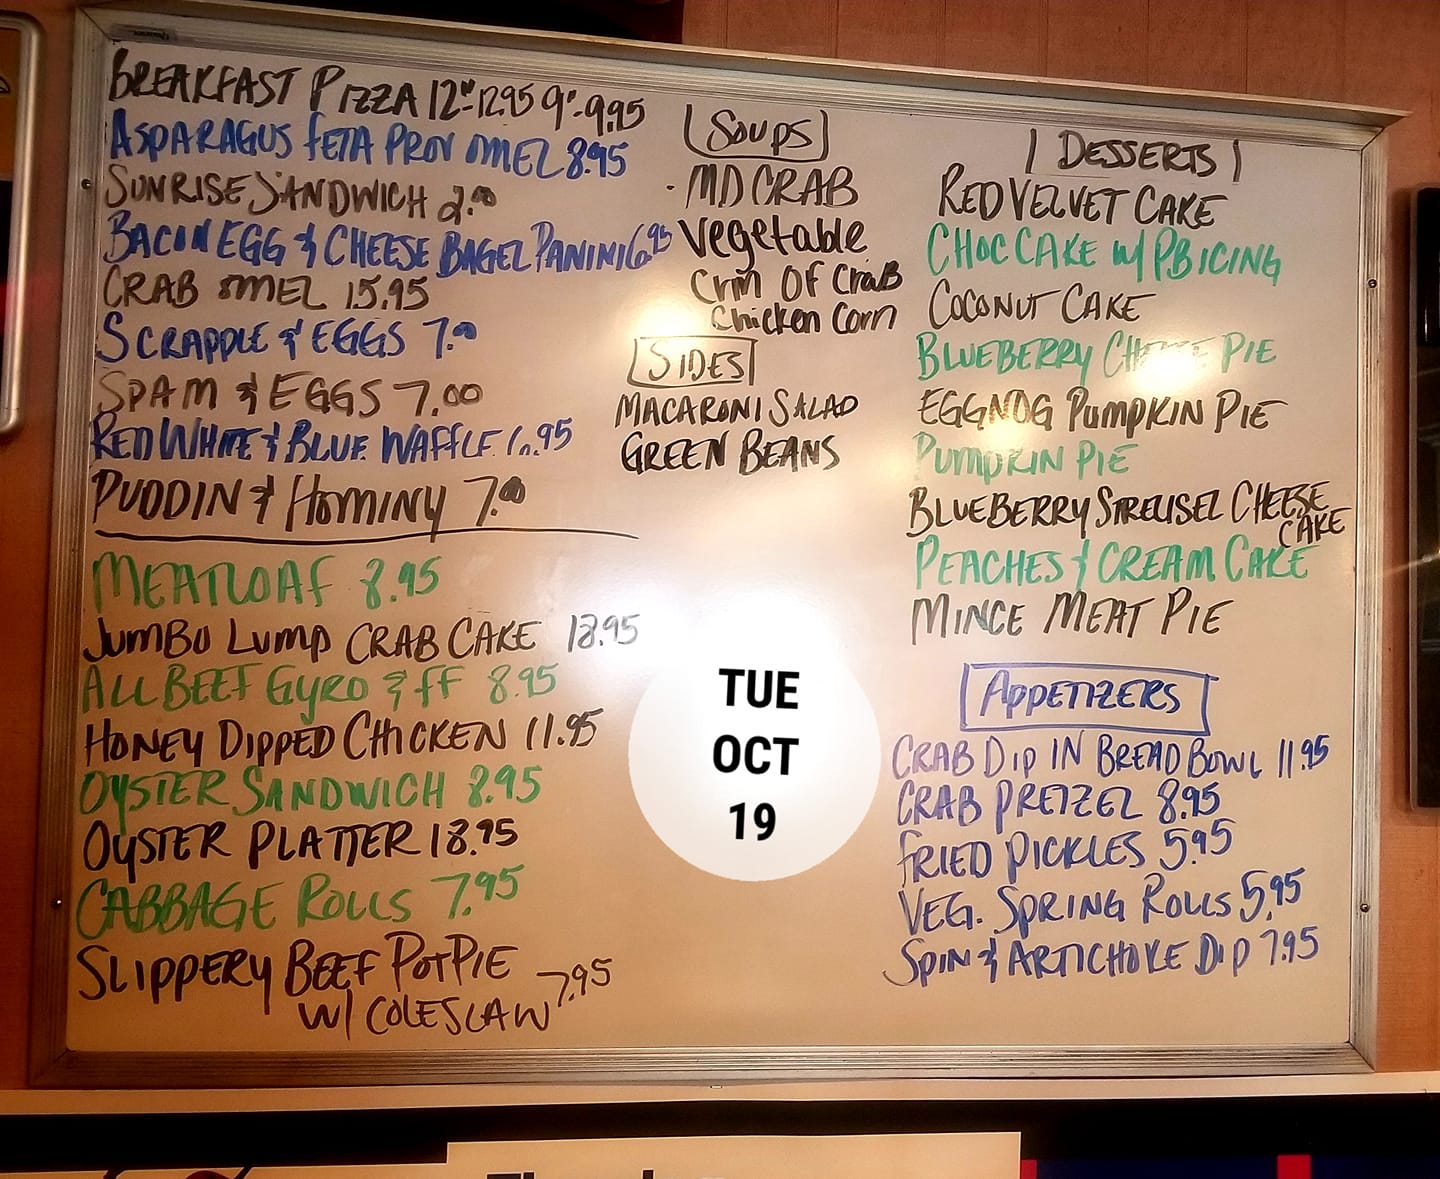 BREAKFAST PIZZA 12"-12.95 9"-9.95
ASPARAGUS FETA PROV OMEL 8.95
SUNRISE SANDWICH 2.00
BACON EGG & CHEESE BAGEL PANINI 6.95
CRAB OMEL 15.95
SCRAPPLE & EGGS 7.00
SPAM & EGGS 7.00
RED WHITE & BLUE WAFFLE 6.95
PUDDIN & HOMINY 7.00
MEATLOAF 8.95
JUMBO LUMP CRAB CAKE 18.95
ALL BEEF GYRO & FF 8.95
HONEY DIPPED CHICKEN 11.95
OYSTER SANDWICH 8.95
OYSTER PLATTER 18.95
CABBAGE ROLLS 7.95
SLIPPERY BEEF POTPIE
W/ COLESLAW 7.95
SOUPS
MD CRAB
Vegetable
Crm OF CraB
Chicken Corn
SIDES
MACARONI SALAD
GREEN BEANS
TUE
OCT
19
DESSERTS
RED VELVET CAKE
CHOC CAKE W/ PB ICING
COCONUT CAKE
BLUEBERRY PIE
EGGNOG PUMPKIN PIE
PUMPKIN PIE
BLUEBERRY STREUSEL CHEESE
CAKE
PEACHES & CREAM CAKE
MINCE MEAT PIE
APPETIZERS
CRAB DIP IN BREAD BOWL 11.95
CRAB PRETZEL 8.95
FRIED PICKLES 5.95
VEG. SPRING ROLLS 5.95
SPIN & ARTICHOKE DIP 7.95